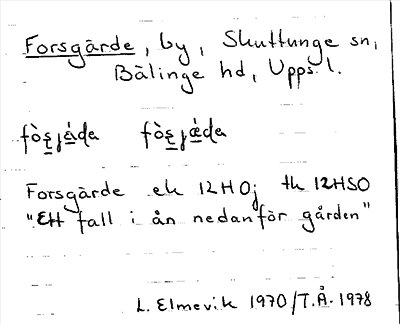 Forsgärde, by, Skuttunge sn,
Bälinge hd, Upps. l.
fòs̱já̱da fòs̱jǽ̱da
Forsgärde ek 12H0j tk 12HSO
"Ett fall i ån nedanför gården"
L. Elmevik 1970/T.Å. 1978